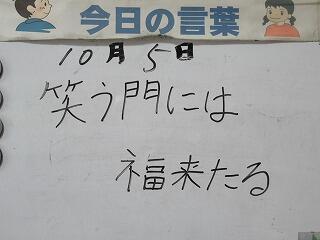 今日の言葉
10月5日
笑う門には
福来たる